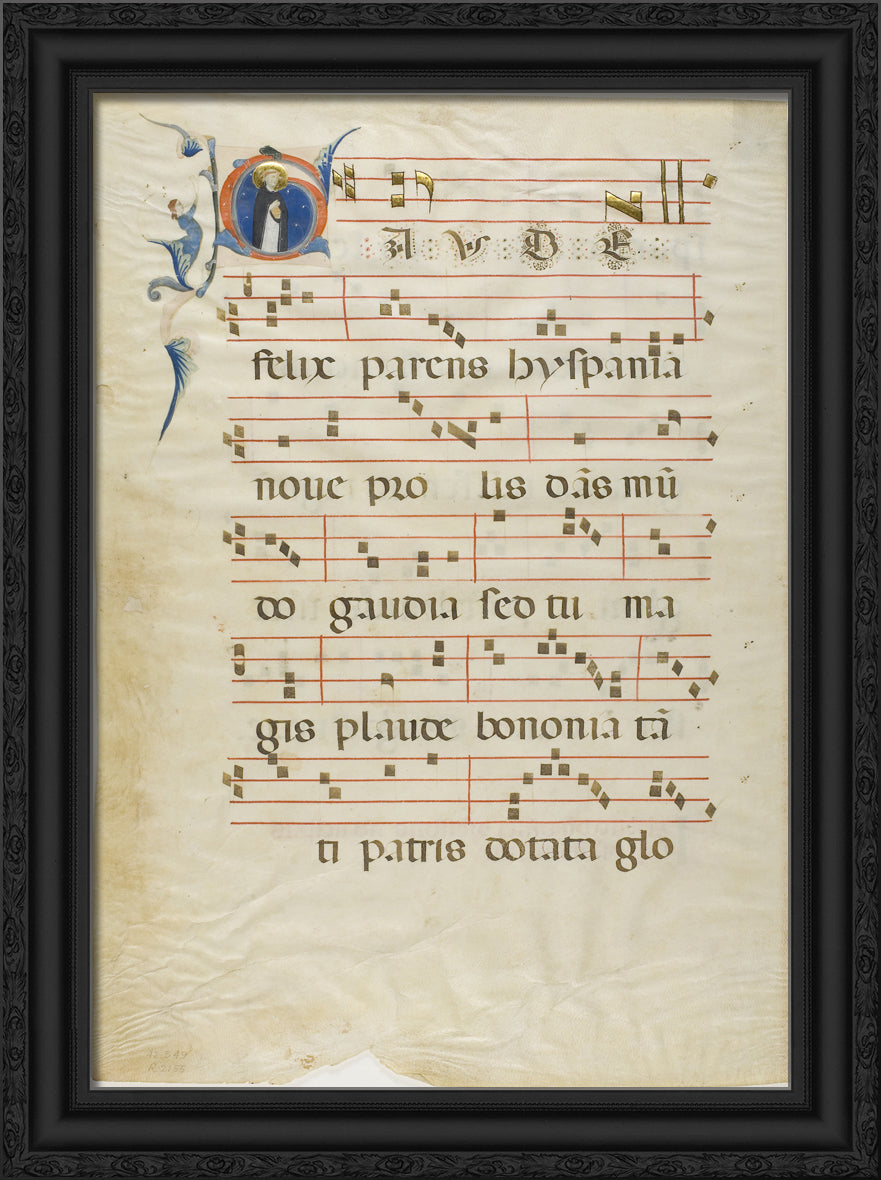 GAVDE
felix parens hyſpania
noue pro lis dãs mũ
do gaudia ſed tu ma
gis plaude bononia tã
ti patris dotata glo
12.549
R 2155